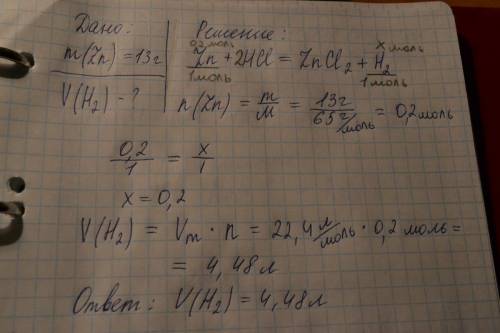 Дано:
m(Zn)=13г
V(H₂) - ?
Решение:
0,2 моль x моль
Zn + 2HCl = ZnCl₂ + H₂
1 моль 1 моль
n(Zn) = m/M = 13г / 65 г/моль = 0,2 моль
0,2/1 = x/1
x = 0,2
V(H₂) = Vm · n = 22,4 л/моль · 0,2 моль =
= 4,48 л
Ответ: V(H₂) = 4,48 л